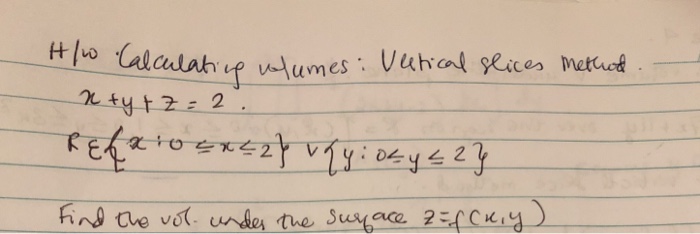 H/w Calculating volumes: Vertical slices method.
x + y + z = 2.
R ∈ {x : 0 ≤ x ≤ 2} ∨ {y : 0 ≤ y ≤ 2}
Find the vol. under the surface z = f(x, y)